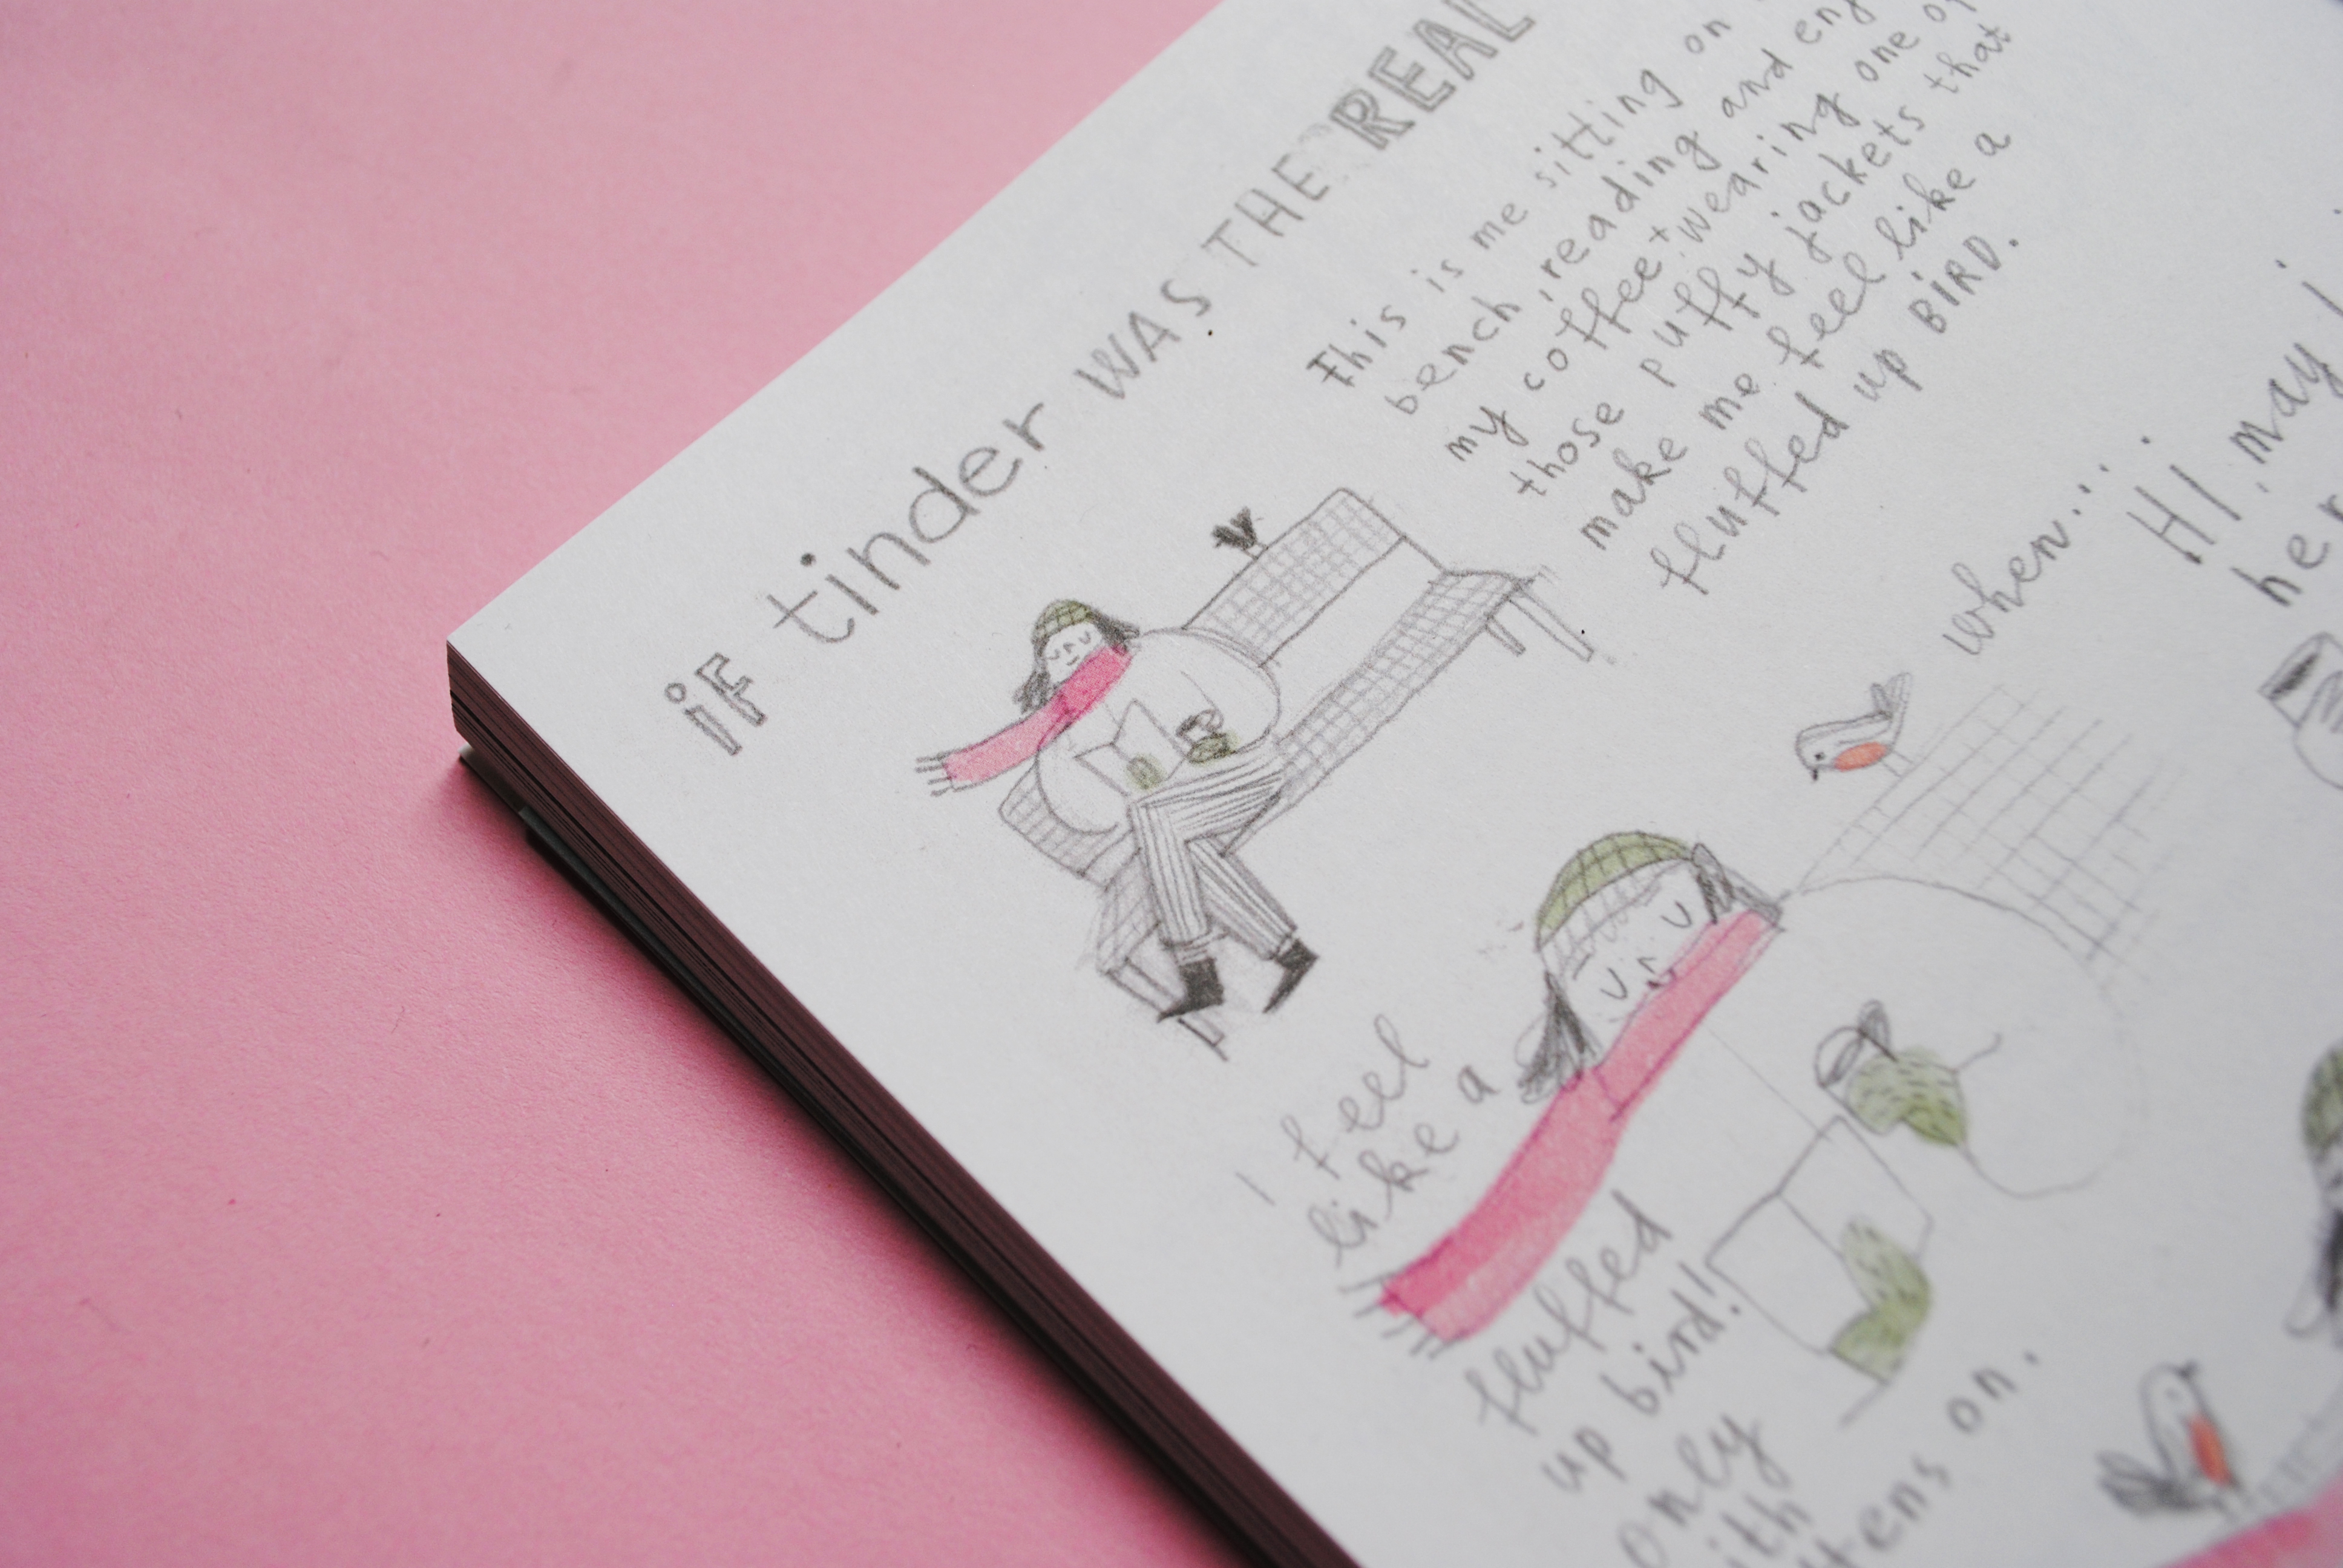 iF tinder WAS THE REAL
This is me sitting on
bench, reading and
my coffee + wearing one
those puffy jackets that
make me feel like a
fluffed up BIRD.
when...
Hi, may
I feel
like a
fluffed
up bird!
only
on.